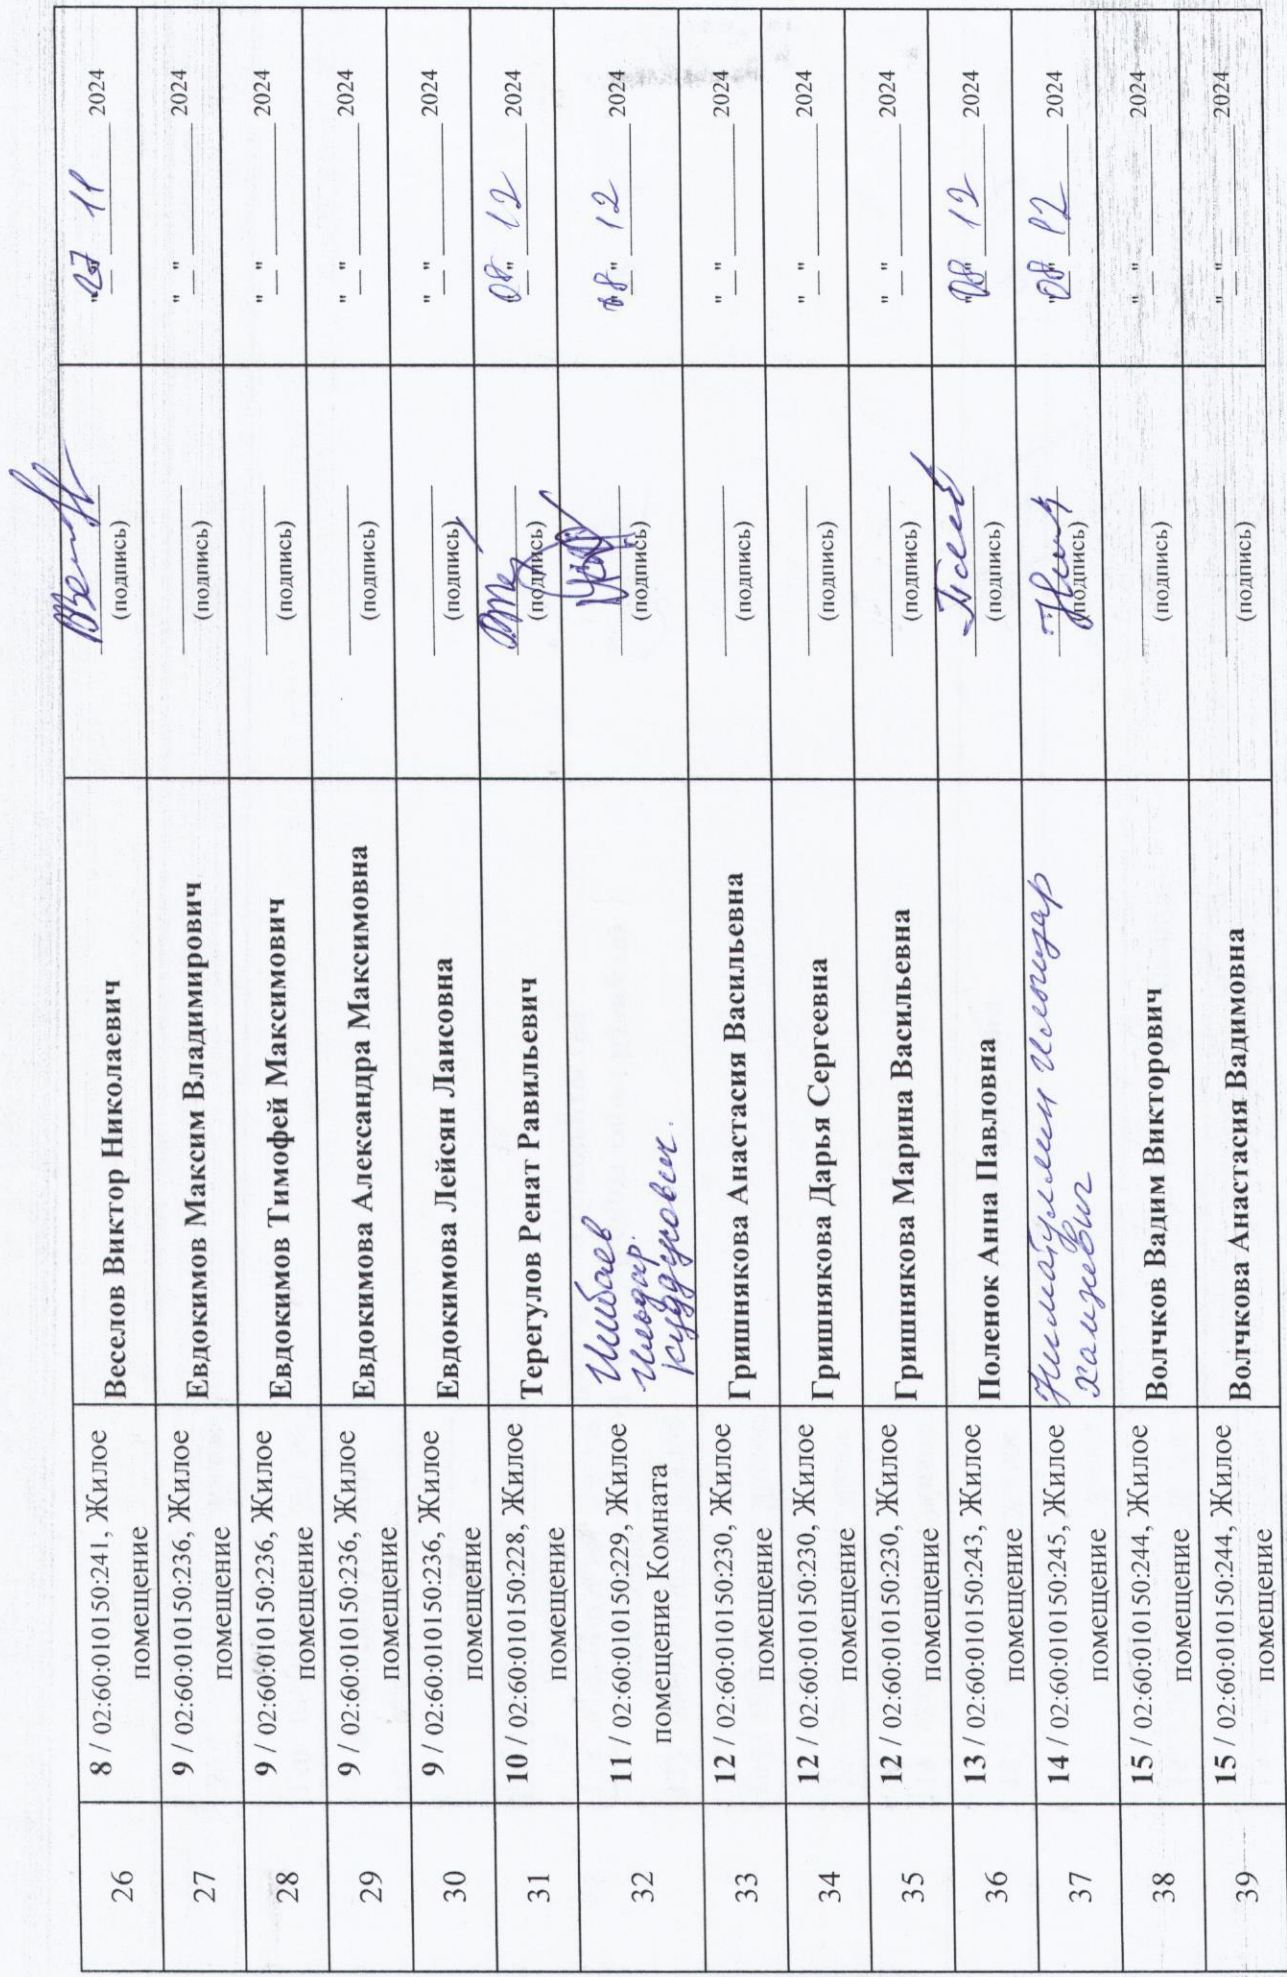 26 8 / 02:60:010150:241, Жилое помещение Веселов Виктор Николаевич (подпись) "27" 11 2024
27 9 / 02:60:010150:236, Жилое помещение Евдокимов Максим Владимирович (подпись) "__" 2024
28 9 / 02:60:010150:236, Жилое помещение Евдокимов Тимофей Максимович (подпись) "__" 2024
29 9 / 02:60:010150:236, Жилое помещение Евдокимова Александра Максимовна (подпись) "__" 2024
30 9 / 02:60:010150:236, Жилое помещение Евдокимова Лейсян Лаисовна (подпись) "__" 2024
31 10 / 02:60:010150:228, Жилое помещение Терегулов Ренат Равильевич (подпись) "08" 12 2024
32 11 / 02:60:010150:229, Жилое помещение Комната Ильдар (подпись) "08" 12 2024
33 12 / 02:60:010150:230, Жилое помещение Гришнякова Анастасия Васильевна (подпись) "__" 2024
34 12 / 02:60:010150:230, Жилое помещение Гришнякова Дарья Сергеевна (подпись) "__" 2024
35 12 / 02:60:010150:230, Жилое помещение Гришнякова Марина Васильевна (подпись) "__" 2024
36 13 / 02:60:010150:243, Жилое помещение Поленок Анна Павловна (подпись) "08" 12 2024
37 14 / 02:60:010150:245, Жилое помещение (подпись) "08" 12 2024
38 15 / 02:60:010150:244, Жилое помещение Волчков Вадим Викторович (подпись) "__" 2024
39 15 / 02:60:010150:244, Жилое помещение Волчкова Анастасия Вадимовна (подпись) "__" 2024